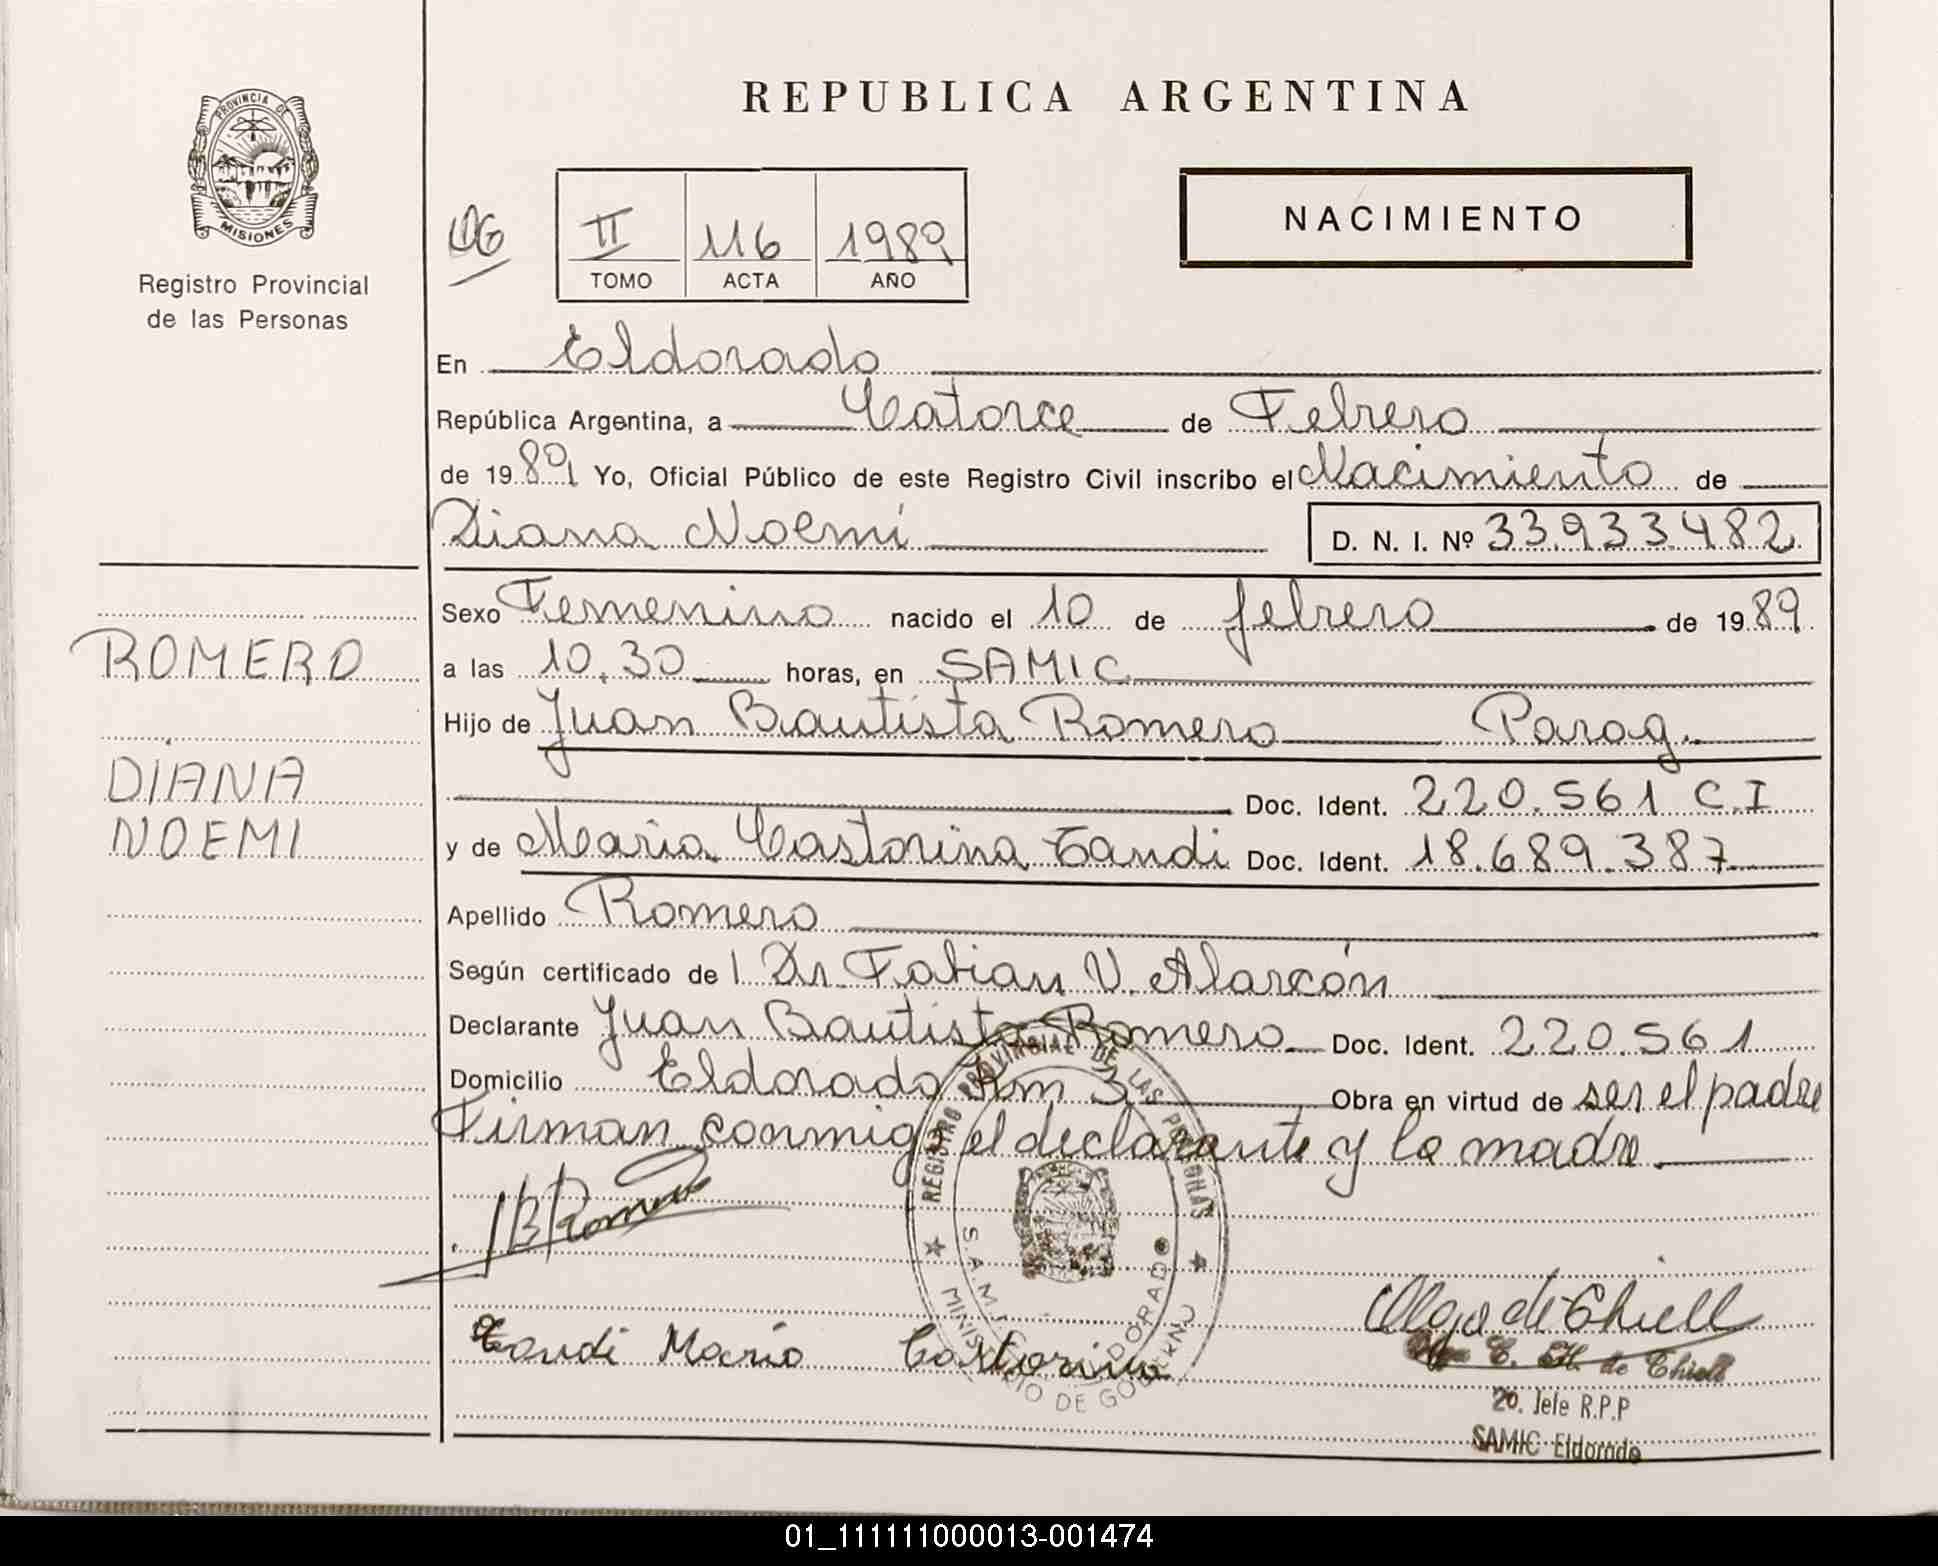 REPUBLICA ARGENTINA
PROVINCIA DE
MISIONES
Registro Provincial
de las Personas
II 116 1989
TOMO ACTA AÑO
NACIMIENTO
En Eldorado
República Argentina, a Catorce de Febrero
de 1989 Yo, Oficial Público de este Registro Civil inscribo el Nacimiento de
Diana Noemí D. N. I. Nº 33.933.482
Sexo Femenino nacido el 10 de febrero de 1989
ROMERO
a las 10,30 horas, en SAMIC
Hijo de Juan Bautista Romero Parag.
DIANA
Doc. Ident. 220.561 C.I
NOEMI
y de Maria Castorina Tandi Doc. Ident. 18.689.387
Apellido Romero
Según certificado de l Dr. Fabian V. Alarcón
Declarante Juan Bautista Romero Doc. Ident. 220.561
Domicilio Eldorado Km 3 Obra en virtud de ser el padre
Firman conmigo el declarante y la madre
JBRomero
REGISTRO PROVINCIAL DE LAS PERSONAS
S.A.M.I.C. ELDORADO
MINISTERIO DE GOBIERNO
Olga de Chiell
Tandi Maria Castorina
Olga E. H. de Chiell
20. Jefe R.P.P
SAMIC Eldorado
01_111111000013-001474